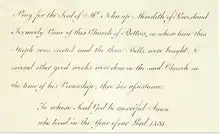 Pray for the Soul of Mr. John ap Meredith of Powysland
Formerly Vicar of this Church of Bettws, in whose time this
Steeple was erected and the three Bells were bought, &
several other good works were done in the said Church in
the time of his Vicarship, thro his assistance.
To whose Soul God be merciful Amen
who lived in the Year of our Lord 1531.